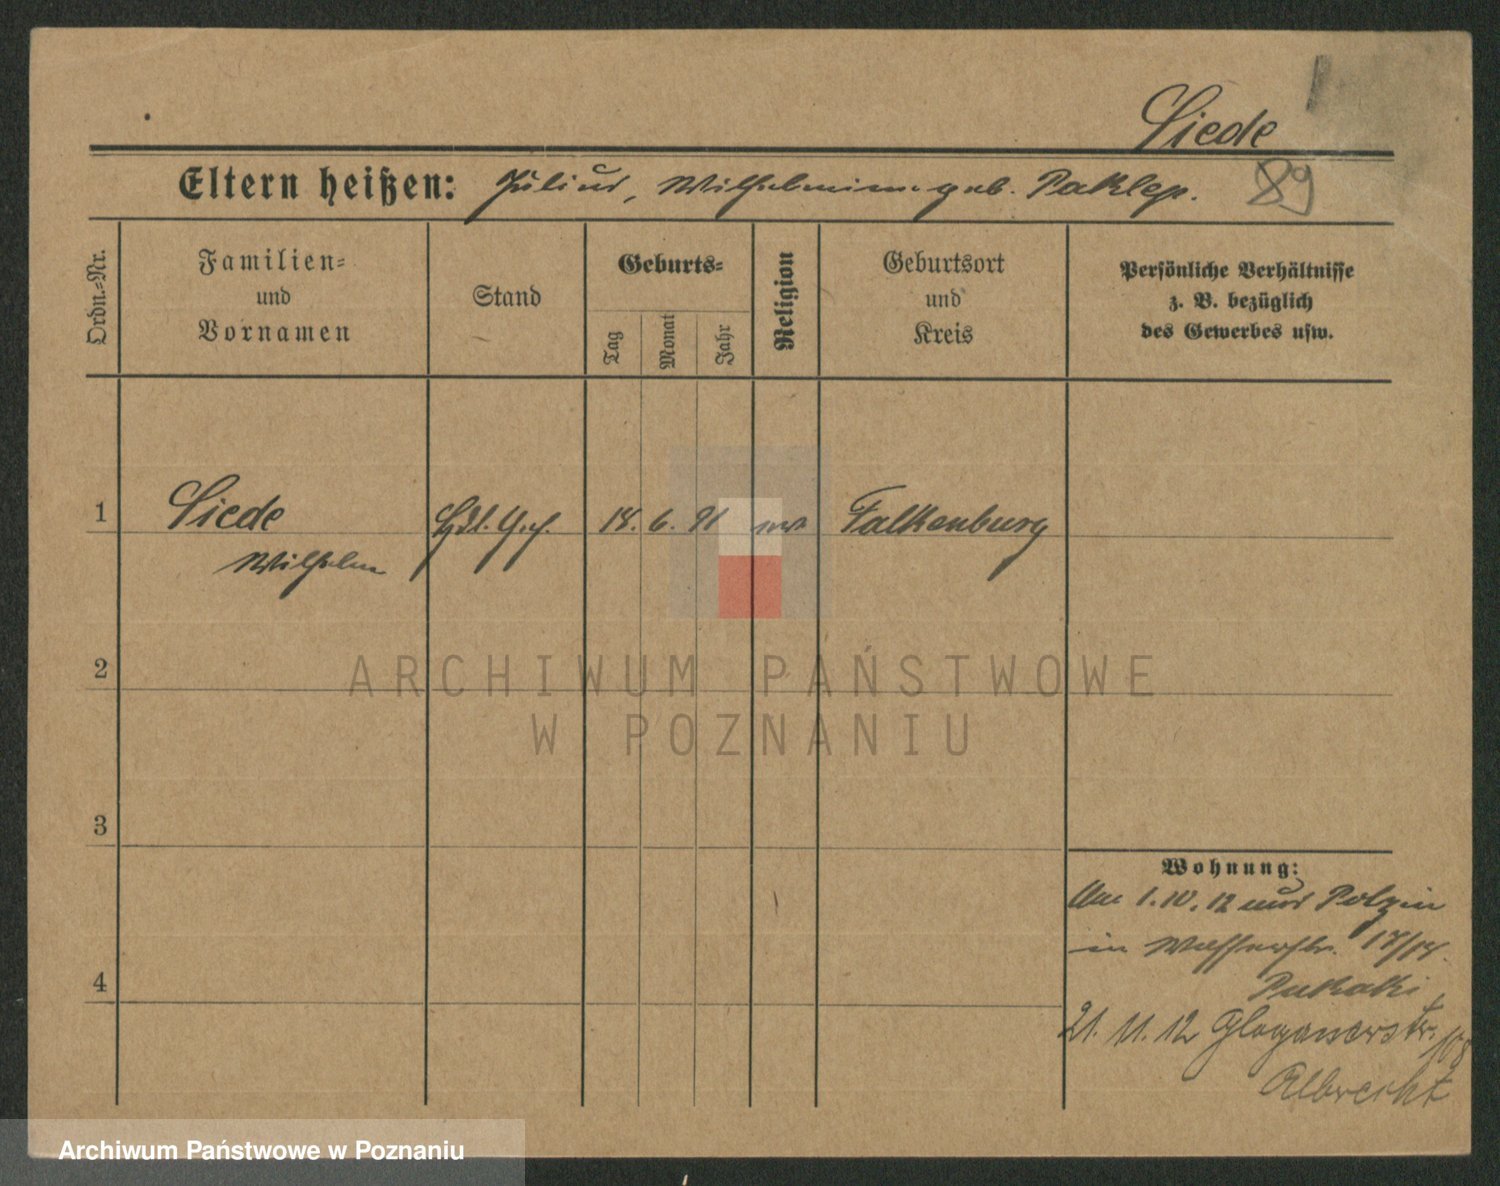 Siede
Eltern heißen: Julius, Wilhelmine geb. Paklep.
89
Ordn.=Nr.
Familien=
und
Vornamen
Stand
Geburts=
Tag
Monat
Jahr
Religion
Geburtsort
und
Kreis
Persönliche Verhältnisse
z. B. bezüglich
des Gewerbes usw.
1
Siede
Wilhelm
18. 6. 91
Falkenburg
2
3
4
ARCHIWUM PAŃSTWOWE
W POZNANIU
Wohnung:
Am 1.10.12 aus Polzin
in Wasserstr. 17/18.
21. 11. 12 Glogauerstr. 108
Albrecht
Archiwum Państwowe w Poznaniu